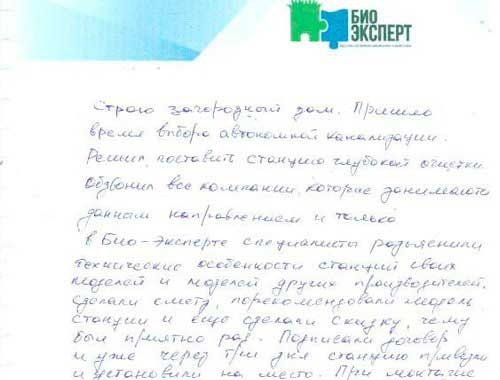 БИО
ЭКСПЕРТ
Строю загородный дом. Пришло
время выбора автономной канализации.
Решил поставить станцию глубокой очистки.
Обзвонил все компании, которые занимаются
данным направлением и только
в Био-Эксперте специалисты разъяснили
технические особенности станций своих
моделей и моделей других производителей,
сделали смету, порекомендовали модель
станции и еще сделали скидку, чему
был приятно рад. Подписали договор
и уже через три дня станцию привезли
и установили на место. При монтаже